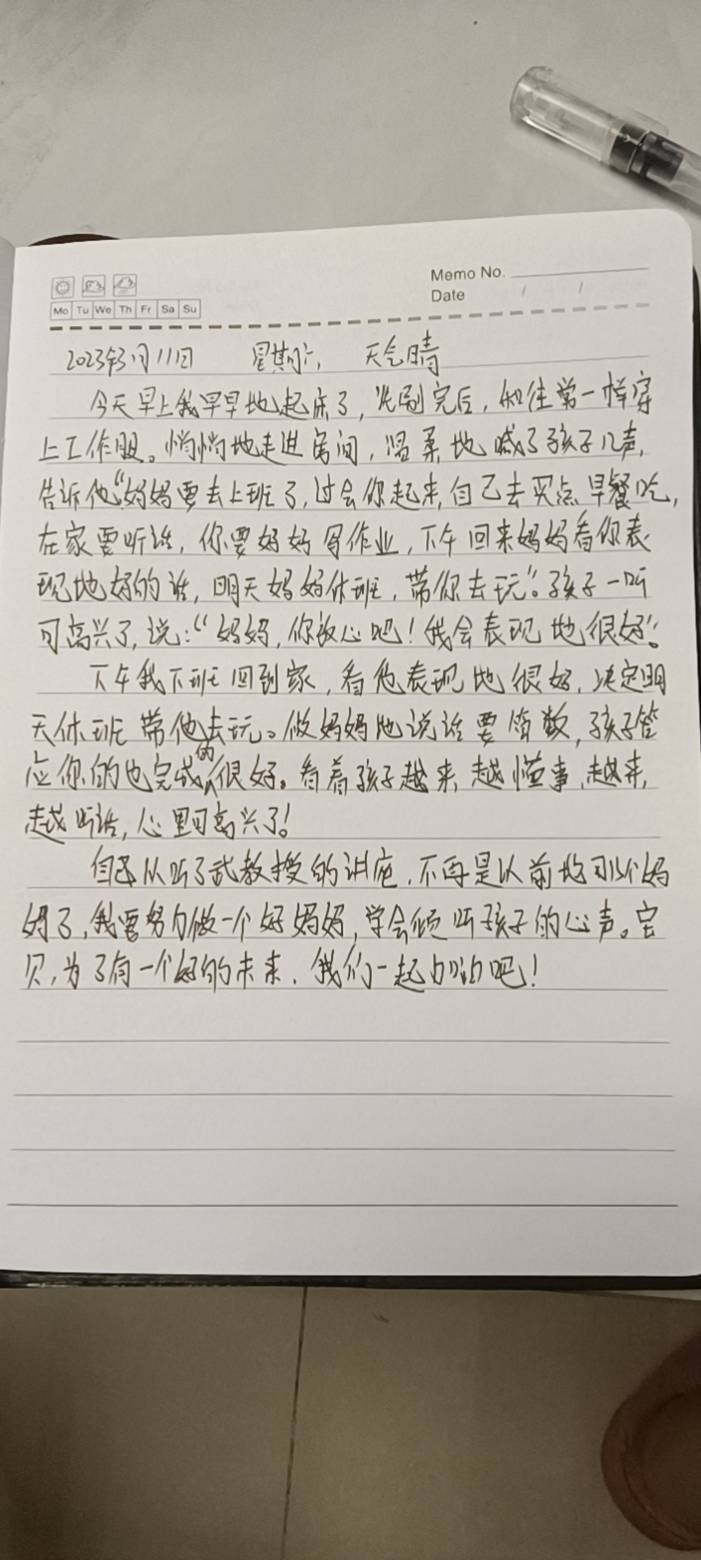 Memo No.
Date / /
Mo Tu We Th Fr Sa Su
2023年3月11日 星期六 天气晴
今天早上我早早地起床了，洗刷完后，和往常一样穿
上工作服。悄悄地走进房间，温柔地喊了孩子几声，
告诉他“妈妈要去上班了，过会你起来，自己去买点早餐吃，
在家要听话，你要好好写作业，下午回来妈妈看你表
现地好的话，明天妈妈休班，带你去玩”。孩子一听
可高兴了，说：“妈妈，你放心吧！我会表现地很好”。
下午我下班回到家，看他表现地很好，决定明
天休班带他去玩。做妈妈地说话要算数，孩子答
应你的也完成的很好。看着孩子越来越懂事，越来
越听话，心里可高兴了！
自己从听了武教授的讲座，不再是以前地那个妈
妈了，我要努力做一个好妈妈，学会倾听孩子的心声。宝
贝，为了有一个好的未来，我们一起加油吧！